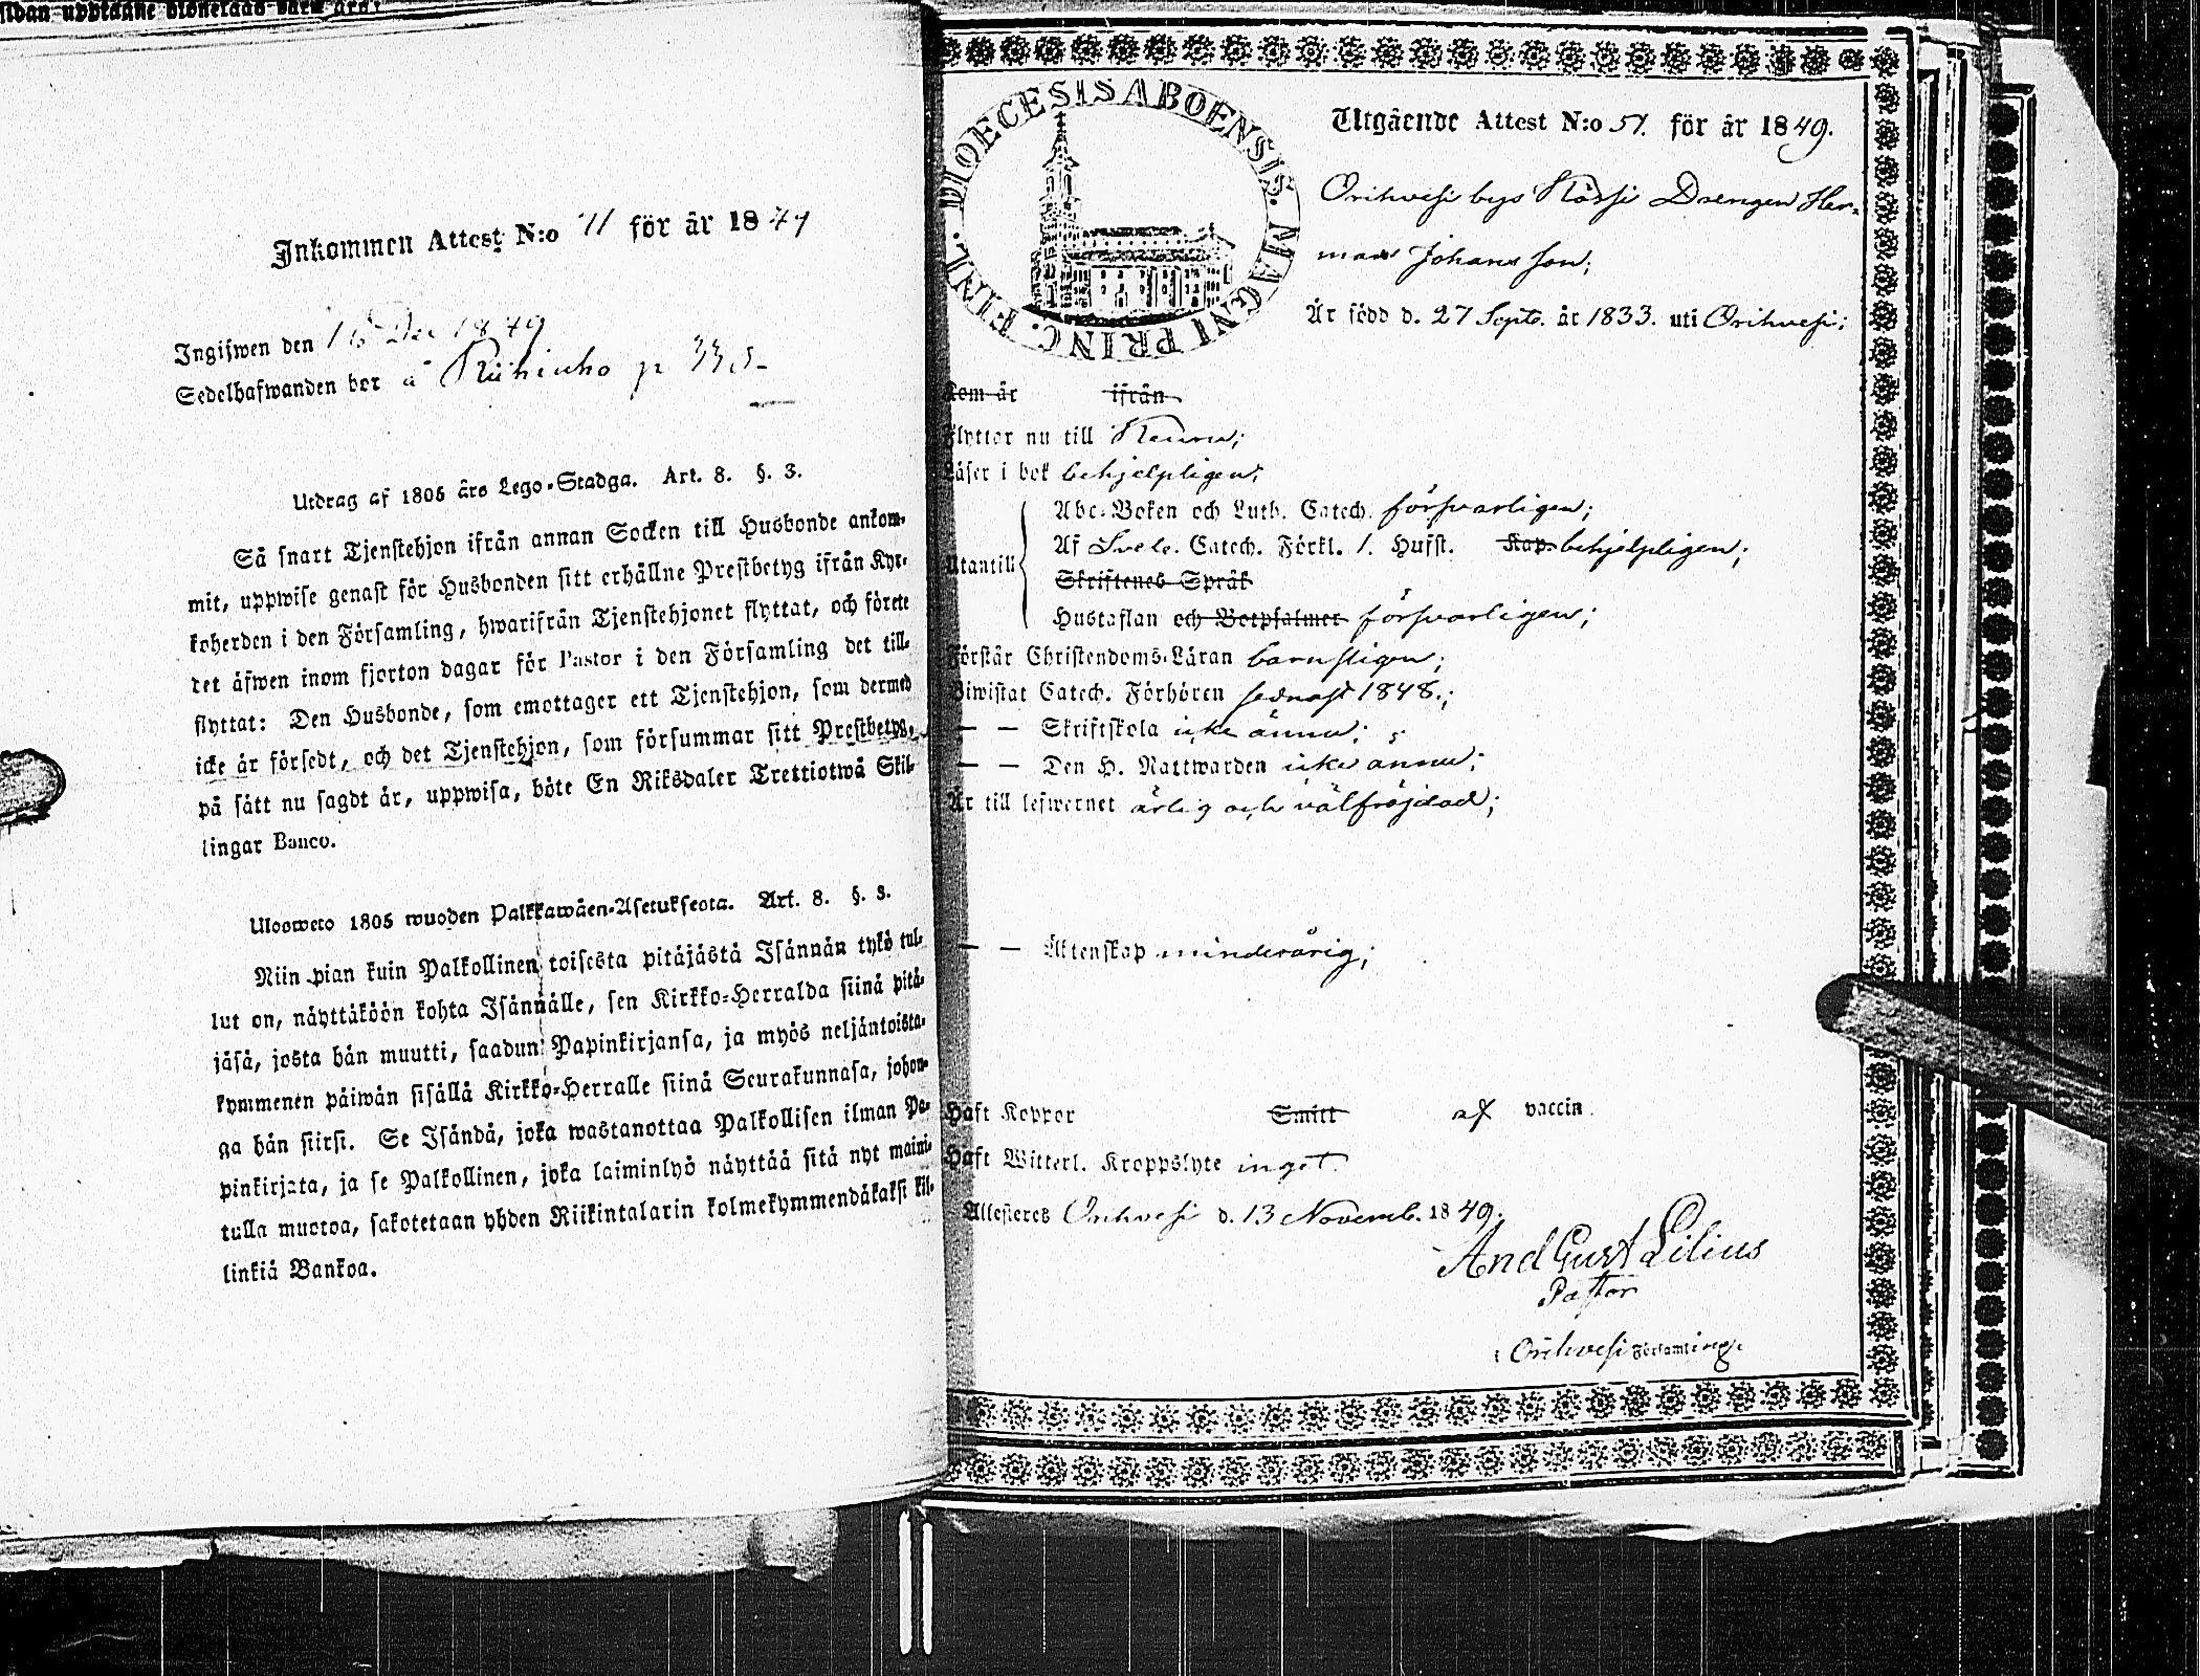 Inkommen Attest N:o 71 för år 1849
Ingifwen den 16 Dec 1849
Sedelhafwanden bor å Riihiaho p 335
Utdrag af 1805 års Lego-Stadga. Art. 8. §. 3.
Så snart Tjenstehjon ifrån annan Socken till Husbonde ankom-
mit, uppwise genast för Husbonden sitt erhållne Prestbetyg ifrån Kyr-
koherden i den Församling, hwarifrån Tjenstehjonet flyttat, och förete
det äfwen inom fjorton dagar för Pastor i den Församling det till-
flyttat: Den Husbonde, som emottager ett Tjenstehjon, som dermed
icke är försedt, och det Tjenstehjon, som försummar sitt Prestbetyg,
på sätt nu sagdt är, uppwisa, böte En Riksdaler Trettiotwå Skil-
lingar Banco.
Ulosweto 1805 wuoden Palkkawäen-Asetuksesta. Art. 8. §. 3.
Niin pian kuin Palkollinen toisesta pitäjästä Isännän tykö tul-
lut on, näyttäköön kohta Isännälle, sen Kirkko-Herralda siinä pitä-
jäsä, josta hän muutti, saadun Papinkirjansa, ja myös neljäntoista-
kymmenen päiwän sisällä Kirkko-Herralle siinä Seurakunnasa, johon-
ga hän siirsi. Se Isändä, joka wastanottaa Palkollisen ilman Pa-
pinkirjata, ja se Palkollinen, joka laiminlyö näyttää sitä nyt maini-
tulla muotoa, sakotetaan yhden Riikintalarin kolmekymmendäkaksi kil-
linkiä Bankoa.
DIOECESIS ABOENSIS. MAGNI PRINC. FINL.
Utgående Attest N:o 51. för år 1849.
Orihvesi bys Kössi Drengen Her-
man Johansson;
Är född d. 27 Sept. år 1833. uti Orihvesi;
Kom år ifrån
Flyttar nu till Keuru;
Läser i bok behjelpligen;
Utantill
Abc-Boken och Luth. Catech. försvarligen;
Af Sveb. Catech. Förkl. 1. Hufst. Kap. behjelpligen;
Skriftenes Språk
Hustaflan och Botpsalmer försvarligen;
Förstår Christendoms-Läran barnsligen;
Biwistat Catech. Förhören sednast 1848.;
— — Skriftskola icke ännu;
— — Den H. Nattwarden icke ännu;
Är till lefwernet ärlig och välfrejdad;
— — Äktenskap minderårig;
Haft Koppor Smitt af vaccin.
Haft Witterl. Kroppslyte inget.
Attesteres Orihvesi d. 13 Novemb. 1849.
And Gust Lilius
Pastor
i Orihvesi Församling.